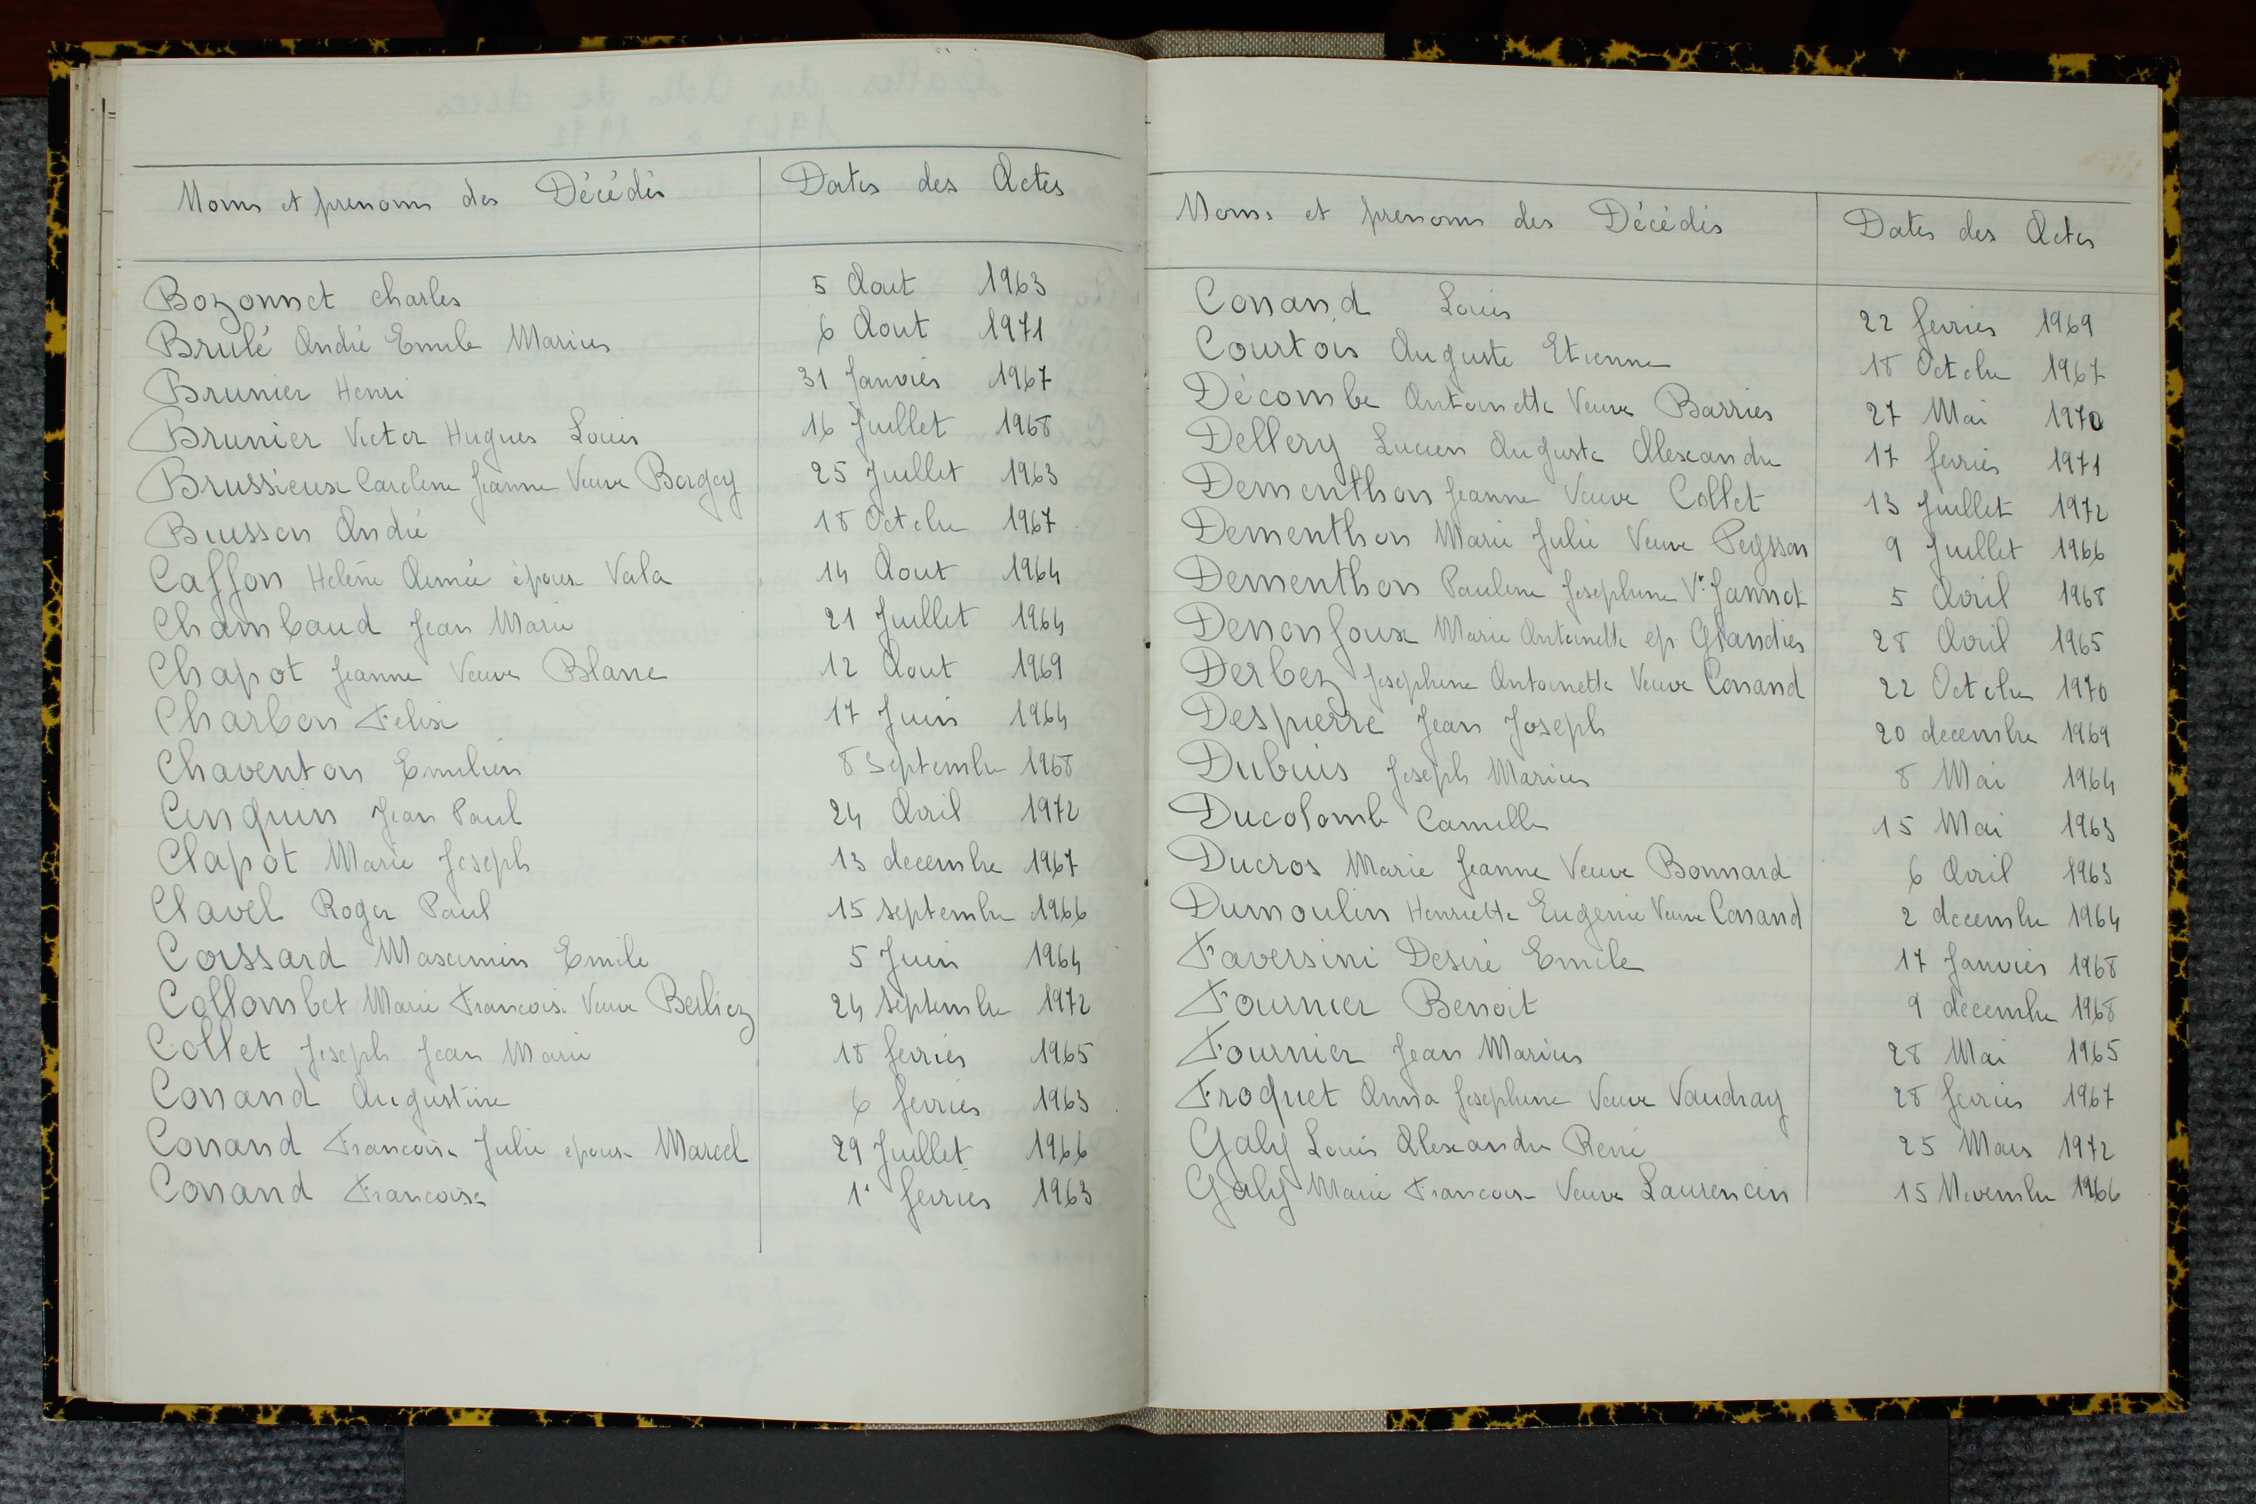 Noms et prenoms des Décédés Dates des Actes
Bozonnet Charles 5 Aout 1963
Brulé André Emile Marius 6 Aout 1971
Brunier Henri 31 Janvier 1967
Brunier Victor Hugues Louis 16 Juillet 1968
Brussieux Caroline Jeanne Veuve Borgey 25 Juillet 1963
Buisson André 18 Octobre 1967
Caffon Helène Aimée épouse Vala 14 Aout 1964
Chambaud Jean Marie 21 Juillet 1964
Chapot Jeanne Veuve Blanc 12 Aout 1969
Charbon Felix 17 Juin 1964
Chaventon Emilien 8 Septembre 1968
Cinquin Jean Paul 24 Avril 1972
Clapot Marie Joseph 13 decembre 1967
Clavel Roger Paul 15 Septembre 1966
Coissard Maximin Emile 5 Juin 1964
Collombet Marie Francoise Veuve Berliez 24 Septembre 1972
Collet Joseph Jean Marie 18 fevrier 1965
Conand Augustine 6 fevrier 1963
Conand Francoise Julie épouse Marcel 29 Juillet 1966
Conand Francoise 1° fevrier 1963
Noms et prenoms des Décédés Dates des Actes
Conand Louis 22 fevrier 1969
Courtois Auguste Etienne 18 Octobre 1967
Décombe Antoinette Veuve Barrier 27 Mai 1970
Dellery Lucien Auguste Alexandre 17 fevrier 1971
Dementhon Jeanne Veuve Collet 13 Juillet 1972
Dementhon Marie Julie Veuve Peysson 9 Juillet 1966
Dementhon Pauline Josephine Ve Jannot 5 Avril 1968
Denonfoux Marie Antoinette ep Grandier 28 Avril 1965
Derbez Josephine Antoinette Veuve Conand 22 Octobre 1970
Despierre Jean Joseph 20 decembre 1969
Dubuis Joseph Marius 8 Mai 1964
Ducolomb Camille 15 Mai 1963
Ducros Marie Jeanne Veuve Bonnard 6 Avril 1963
Dumoulin Henriette Eugenie Veuve Conand 2 decembre 1964
Faversini Desiré Emile 17 Janvier 1968
Fournier Benoit 9 decembre 1968
Fournier Jean Marius 28 Mai 1965
Froquet Anna Josephine Veuve Vaudray 28 fevrier 1967
Galy Louis Alexandre René 25 Mars 1972
Galy Marie Francoise Veuve Laurencin 15 Novembre 1966